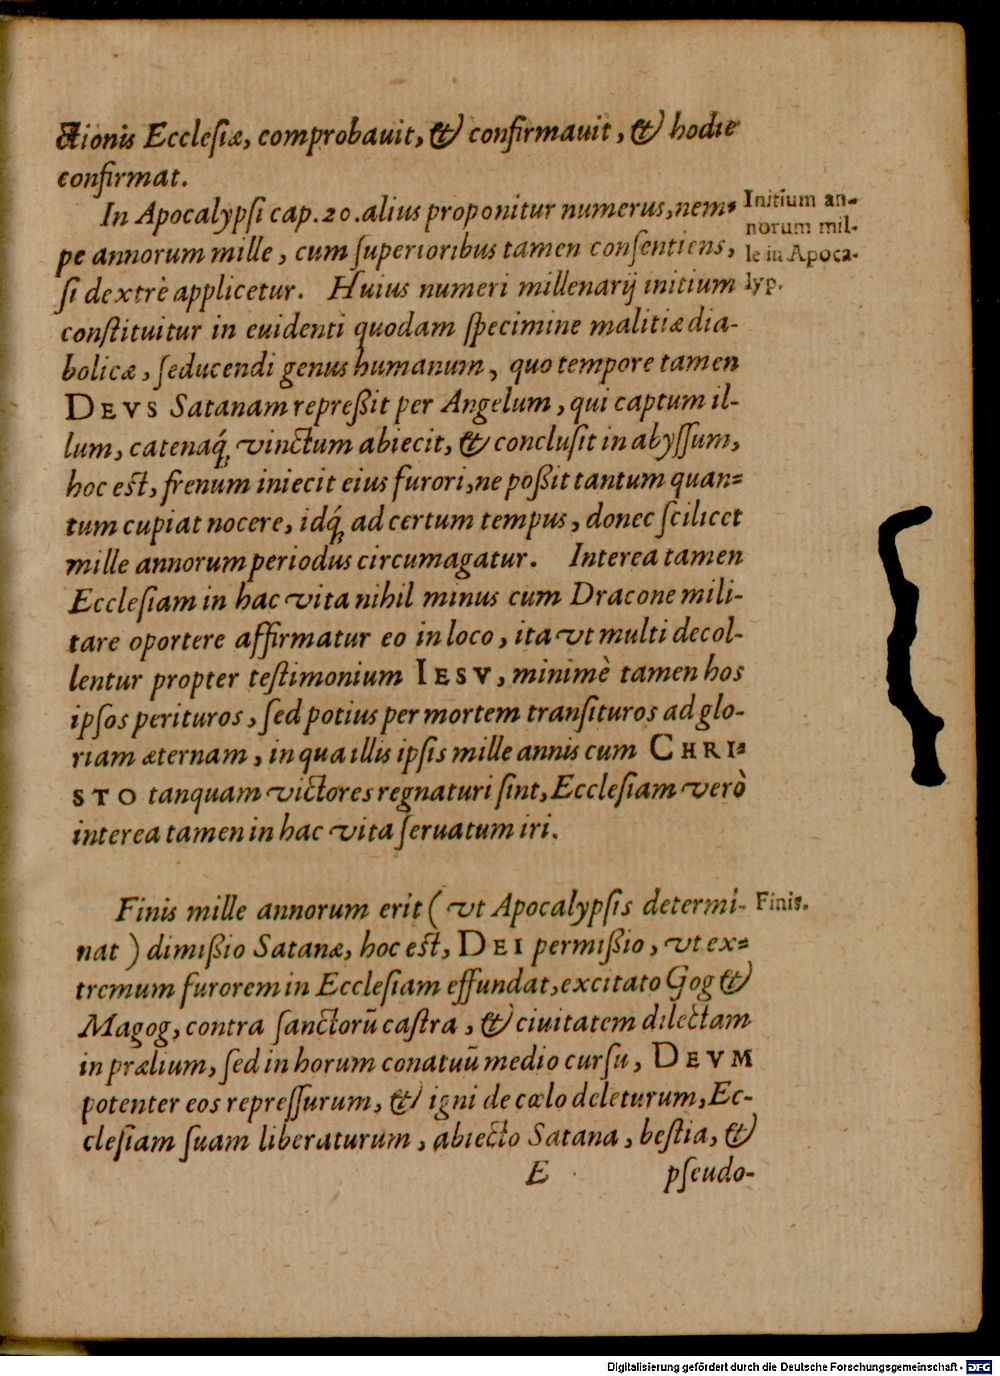 ctionis Ecclesiæ, comprobauit, & confirmauit, & hodie
confirmat.
In Apocalypsi cap. 20. alius proponitur numerus, nem-
pe annorum mille, cum superioribus tamen consentiens,
si dextrè applicetur. Huius numeri millenarij initium
constituitur in euidenti quodam specimine malitiæ dia-
bolicæ, seducendi genus humanum, quo tempore tamen
DEVS Satanam repreßit per Angelum, qui captum il-
lum, catenaq́; vinctum abiecit, & conclusit in abyssum,
hoc est, frenum iniecit eius furori, ne poßit tantum quan-
tum cupiat nocere, idq́; ad certum tempus, donec scilicet
mille annorum periodus circumagatur. Interea tamen
Ecclesiam in hac vita nihil minus cum Dracone mili-
tare oportere affirmatur eo in loco, ita vt multi decol-
lentur propter testimonium IESV, minimè tamen hos
ipsos perituros, sed potius per mortem transituros ad glo-
riam æternam, in qua illis ipsis mille annis cum CHRI-
STO tanquam victores regnaturi sint, Ecclesiam verò
interea tamen in hac vita seruatum iri.
Initium an-
norum mil-
le in Apoca-
lyp.
Finis mille annorum erit ( vt Apocalypsis determi-
nat ) dimißio Satanæ, hoc est, DEI permißio, vt ex-
tremum furorem in Ecclesiam effundat, excitato Gog &
Magog, contra sanctorū castra, & ciuitatem dilectam
in prælium, sed in horum conatuū medio cursu, DEVM
potenter eos repressurum, & igni de cœlo deleturum, Ec-
clesiam suam liberaturum, abiecto Satana, bestia, &
Finis.
E pseudo-
Digitalisierung gefördert durch die Deutsche Forschungsgemeinschaft - DFG